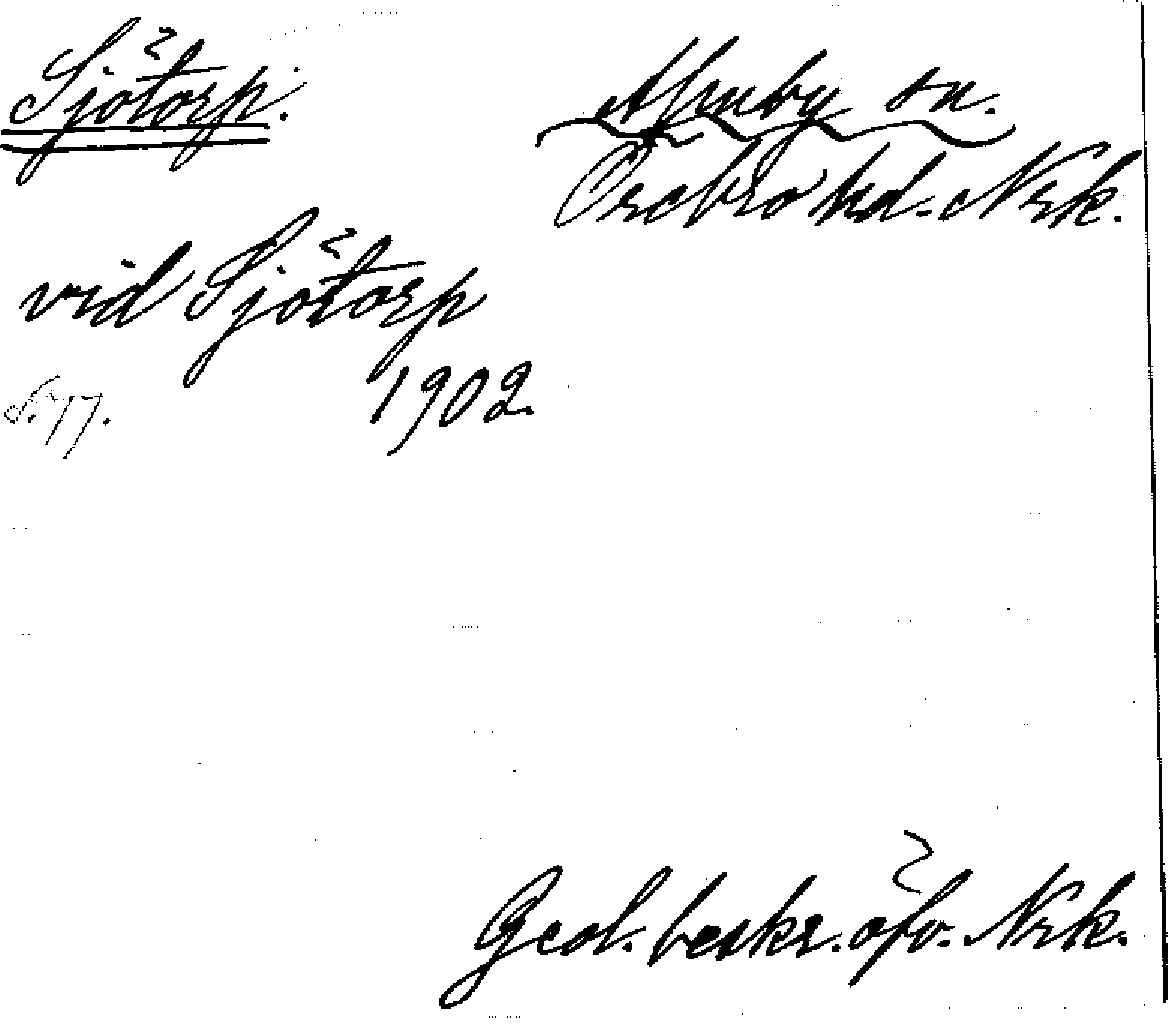 Sjötorp.
Almby sn.
Örebro hd. Nrk.
vid Sjötorp
1902
S. 77.
Geol. beskr. öfv. Nrk.